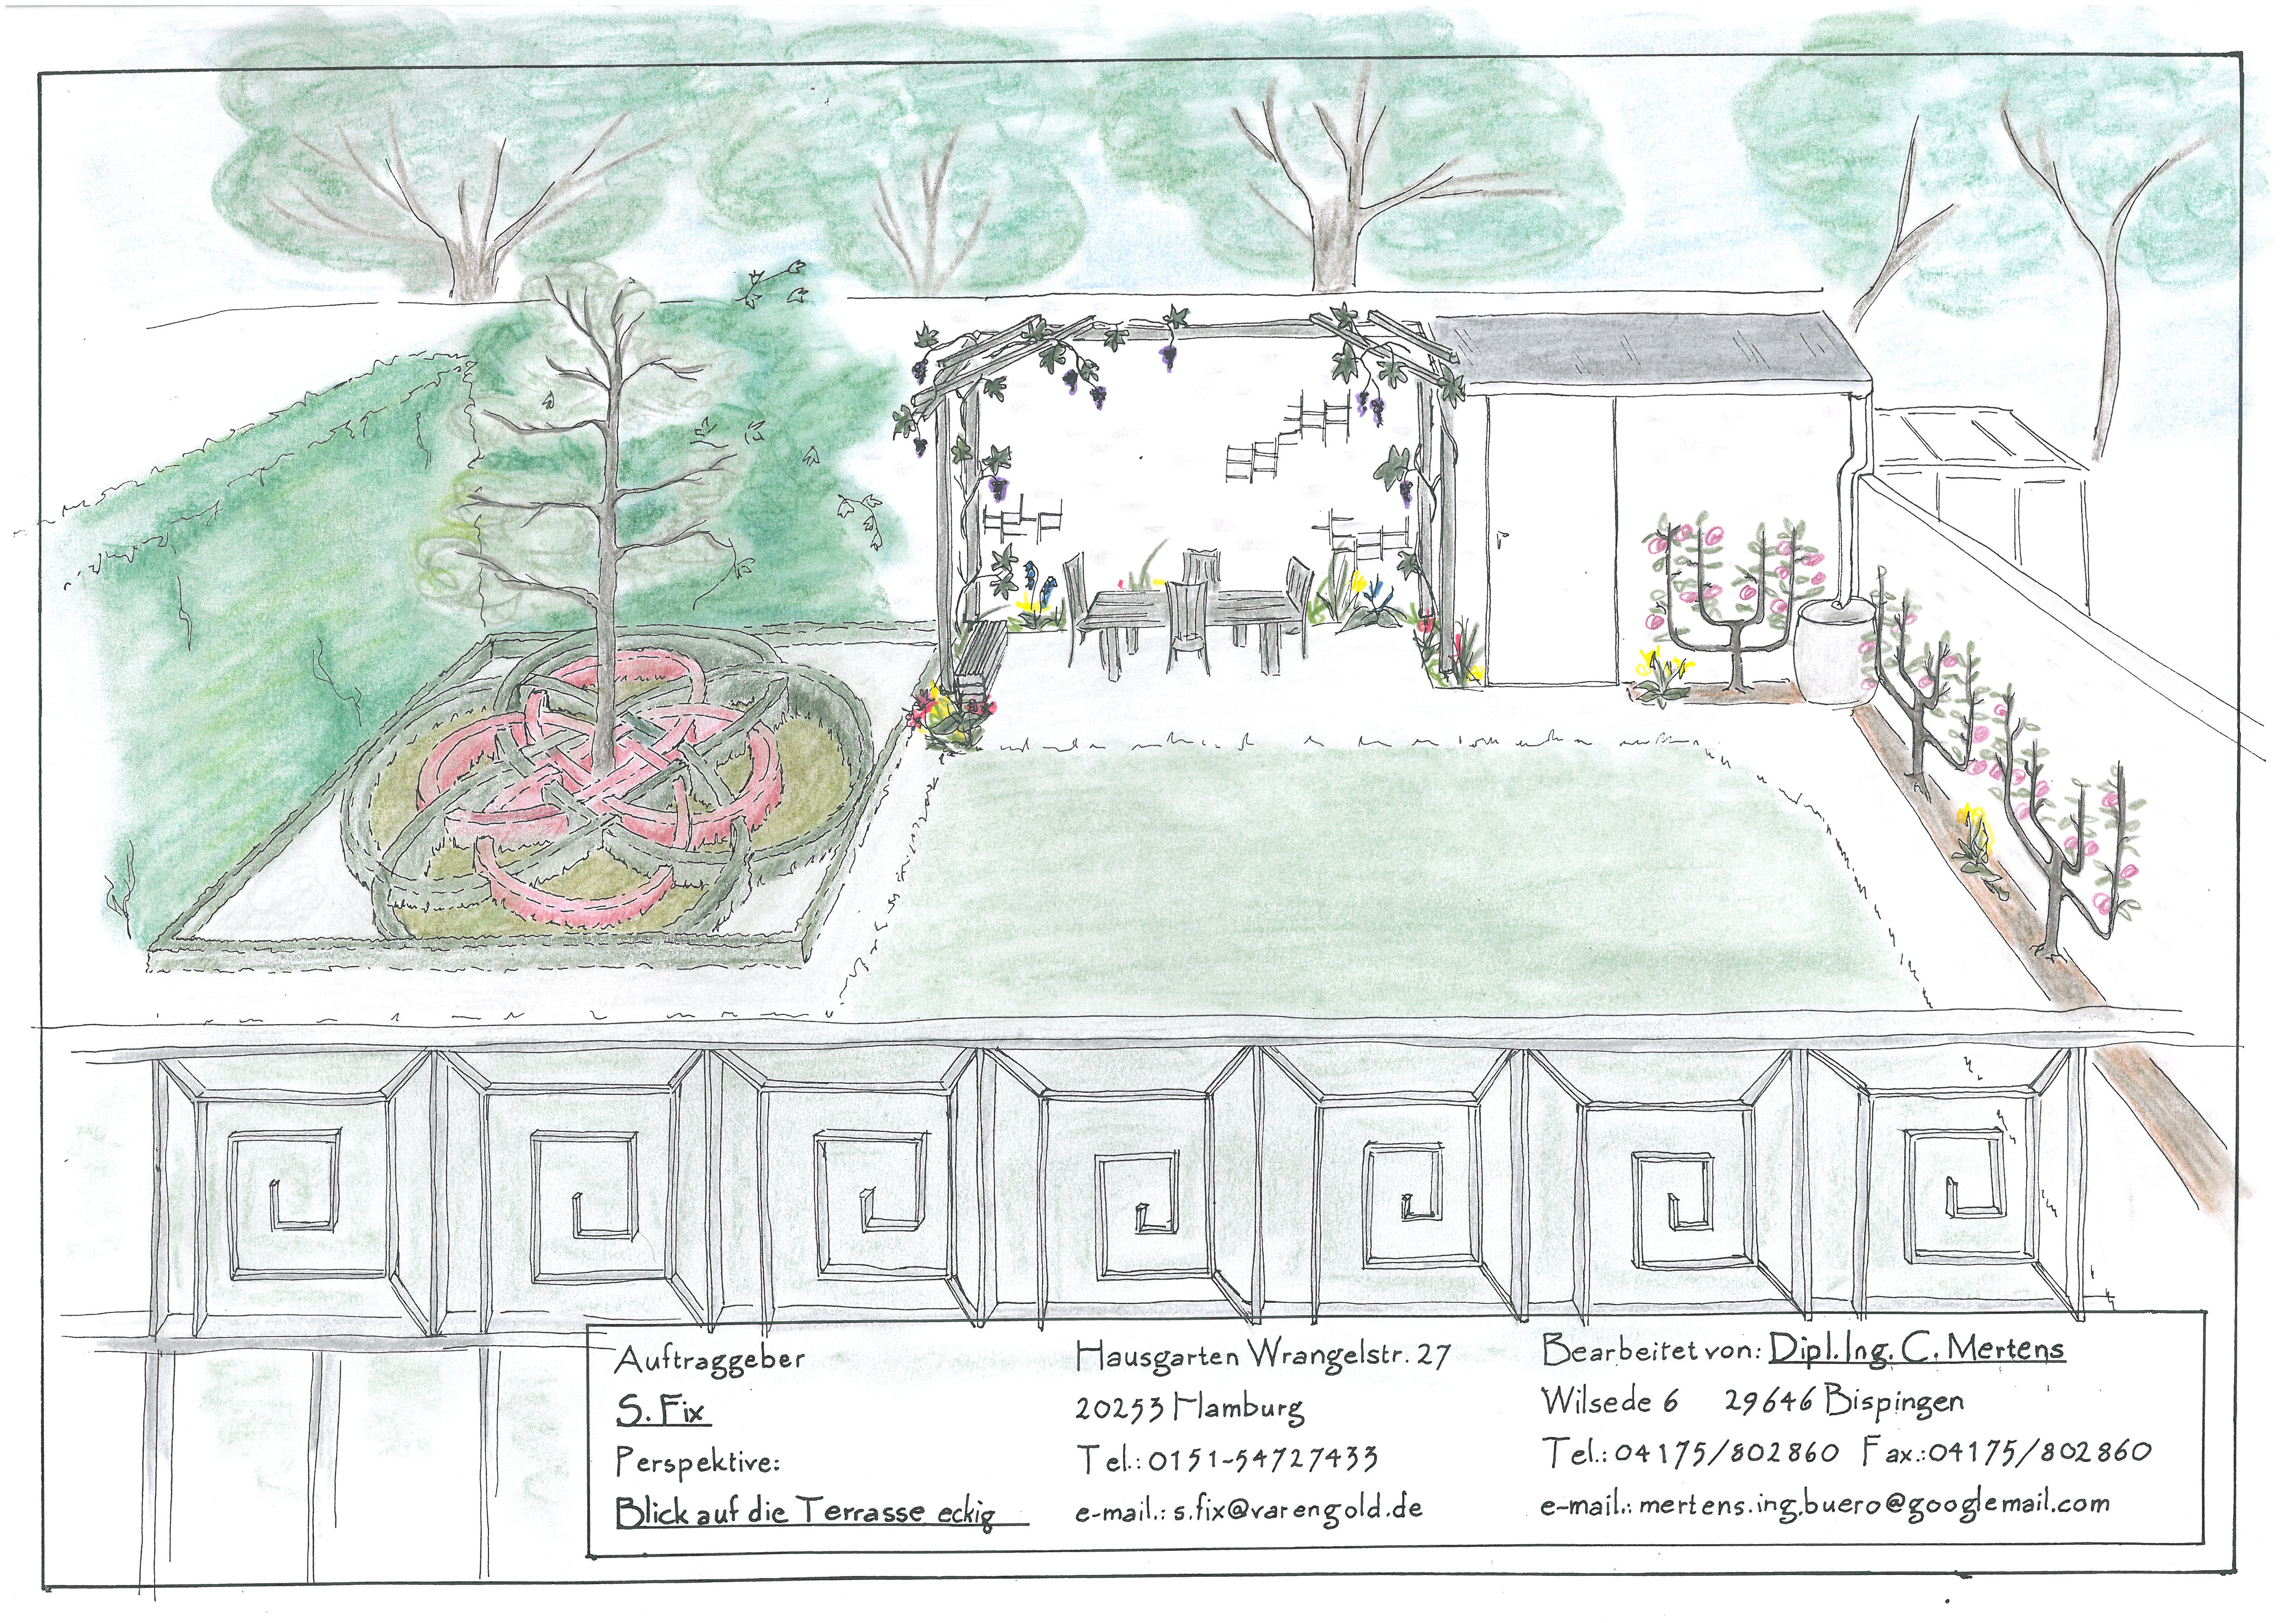 Auftraggeber
S. Fix
Perspektive:
Blick auf die Terrasse eckig
Hausgarten Wrangelstr. 27
20253 Hamburg
Tel.: 0151-54727433
e-mail.: s.fix@varengold.de
Bearbeitet von: Dipl. Ing. C. Mertens
Wilsede 6 29646 Bispingen
Tel.: 04175/802860 Fax.: 04175/802860
e-mail.: mertens.ing.buero@googlemail.com